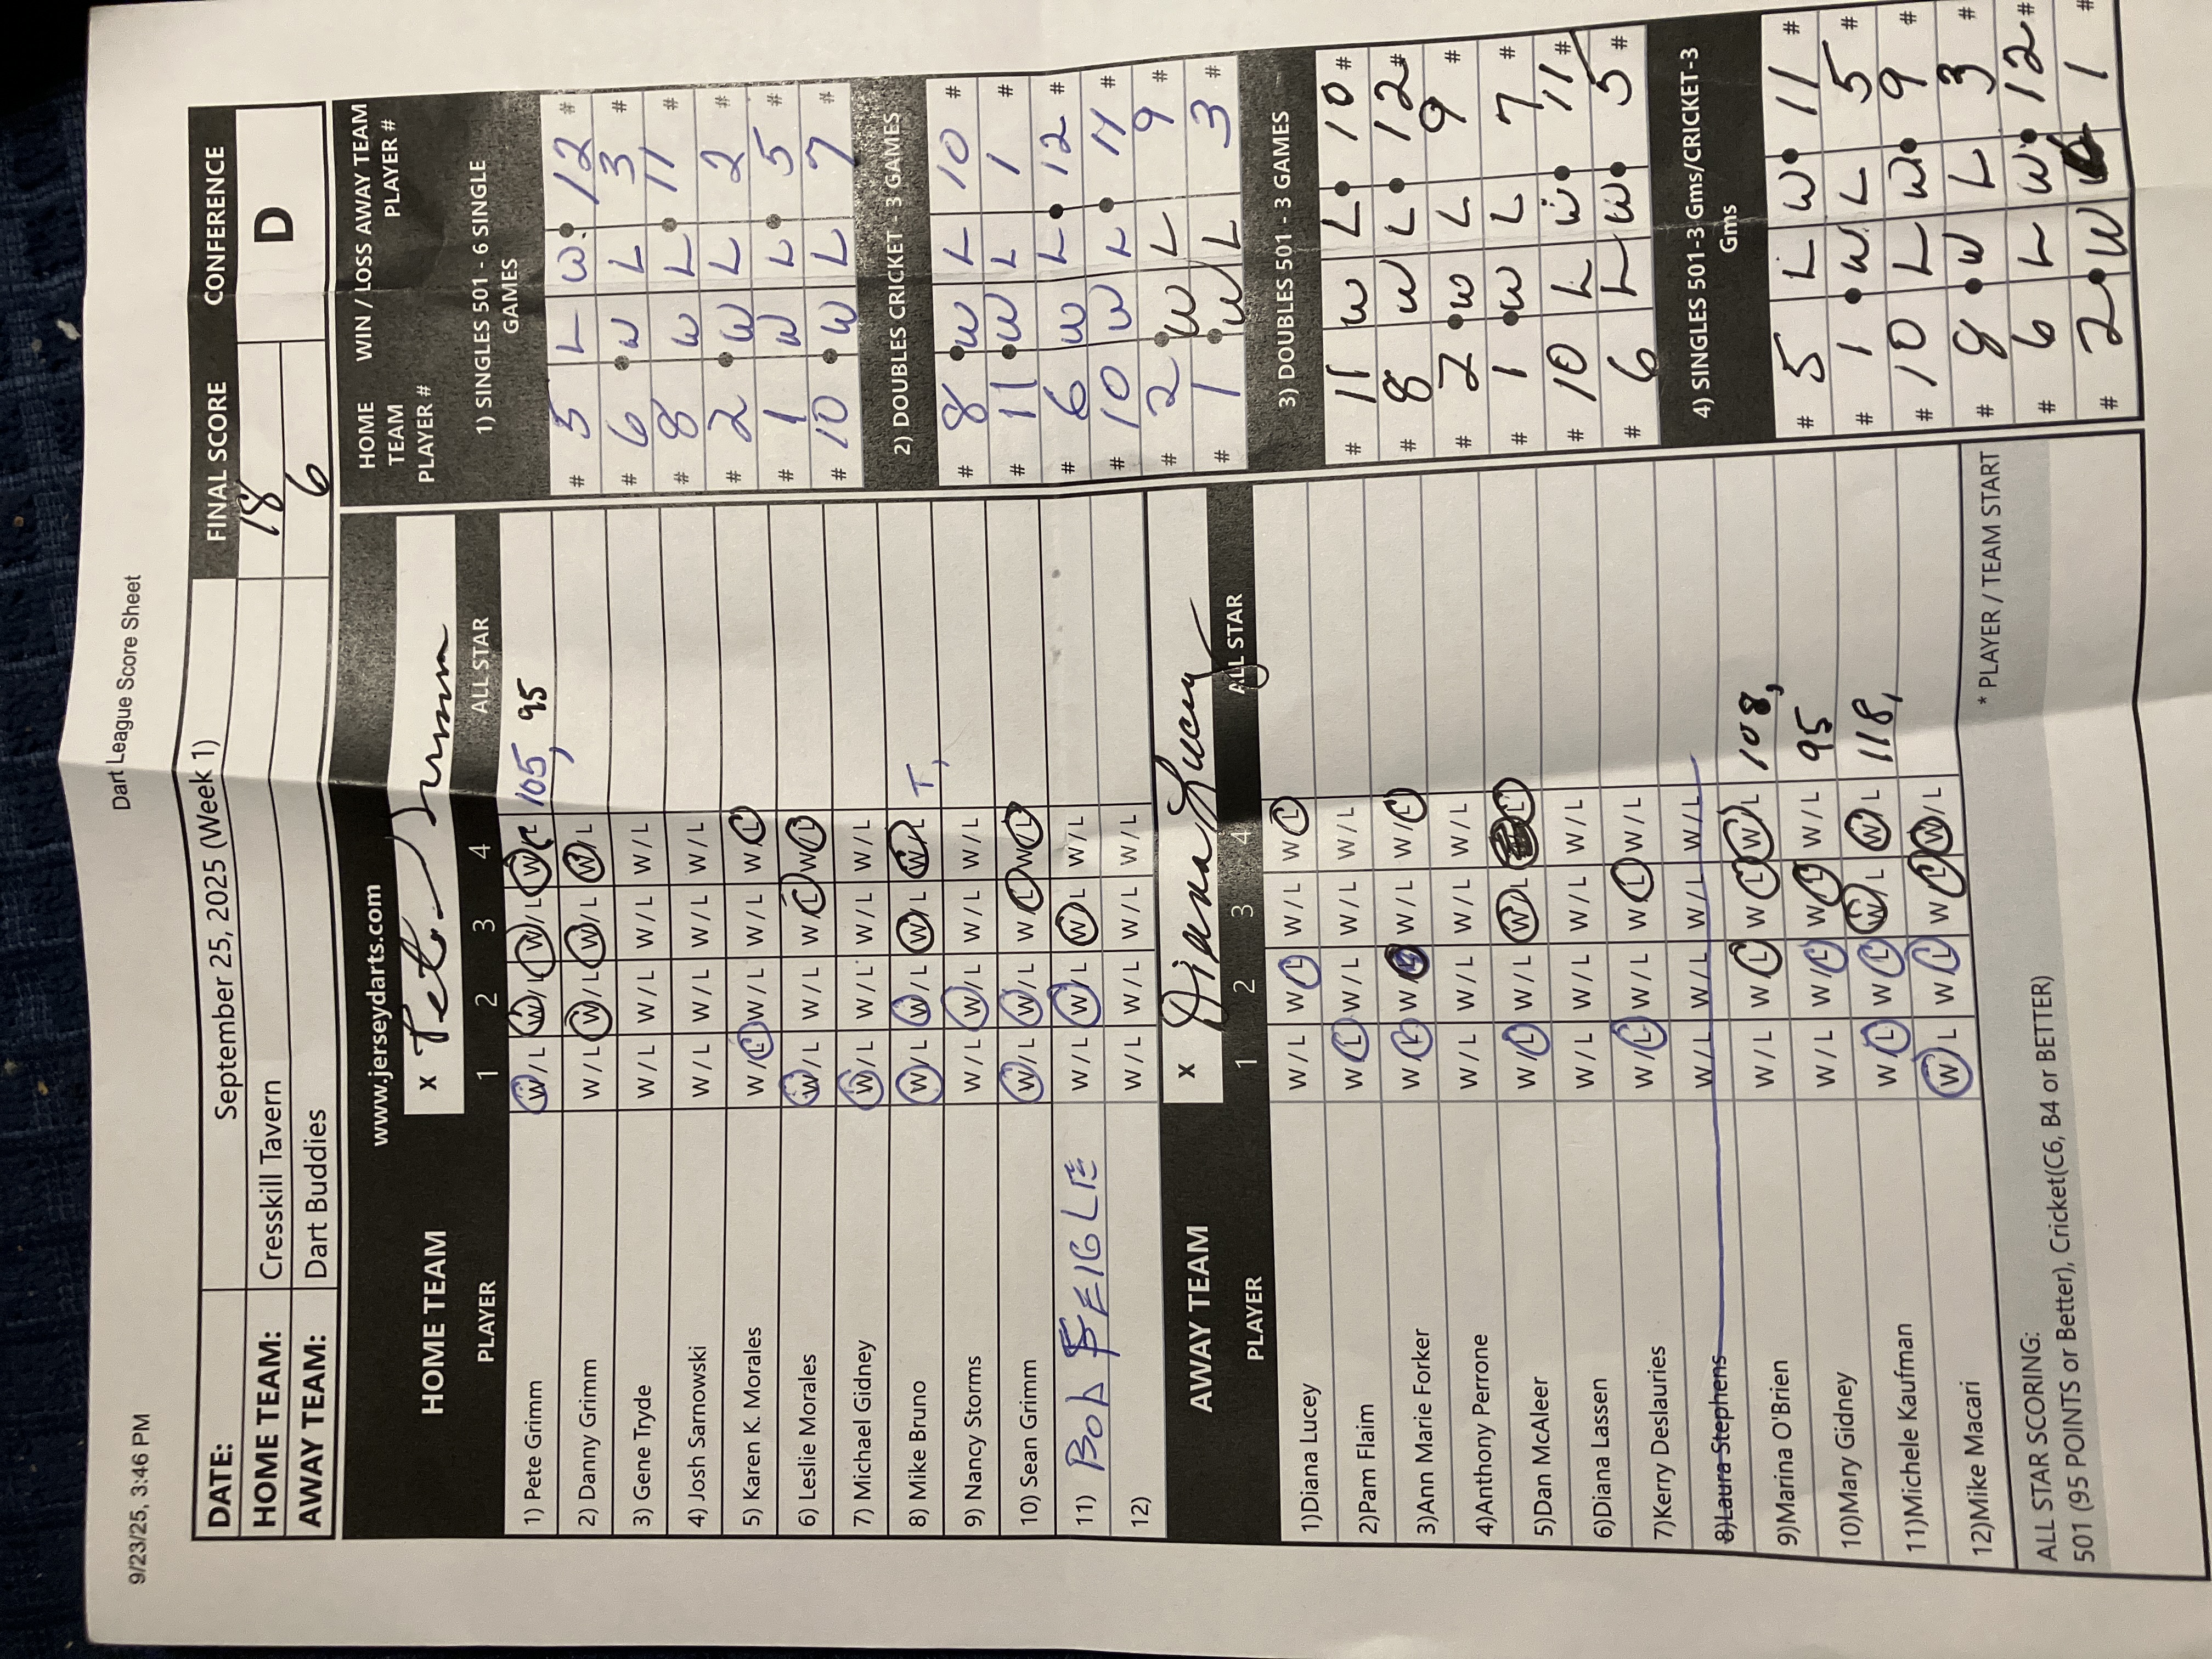 9/23/25, 3:46 PM Dart League Score Sheet
DATE: September 25, 2025 (Week 1) FINAL SCORE CONFERENCE
HOME TEAM: Cresskill Tavern 18 D
AWAY TEAM: Dart Buddies 6
www.jerseydarts.com
HOME TEAM x Pete Grimm
PLAYER 1 2 3 4 ALL STAR
1) Pete Grimm W / L W / L W / L W / L 105, 95
2) Danny Grimm W / L W / L W / L W / L
3) Gene Tryde W / L W / L W / L W / L
4) Josh Sarnowski W / L W / L W / L W / L
5) Karen K. Morales W / L W / L W / L W / L
6) Leslie Morales W / L W / L W / L W / L
7) Michael Gidney W / L W / L W / L W / L
8) Mike Bruno W / L W / L W / L W / L T,
9) Nancy Storms W / L W / L W / L W / L
10) Sean Grimm W / L W / L W / L W / L
11) Bob FEIGLE W / L W / L W / L W / L
12) W / L W / L W / L W / L
AWAY TEAM x Diana Lucey
PLAYER 1 2 3 4 ALL STAR
1)Diana Lucey W / L W / L W / L W / L
2)Pam Flaim W / L W / L W / L W / L
3)Ann Marie Forker W / L W / L W / L W / L
4)Anthony Perrone W / L W / L W / L W / L
5)Dan McAleer W / L W / L W / L W / L
6)Diana Lassen W / L W / L W / L W / L
7)Kerry Deslauries W / L W / L W / L W / L
8)Laura Stephens W / L W / L W / L W / L
9)Marina O'Brien W / L W / L W / L W / L 108,
10)Mary Gidney W / L W / L W / L W / L 95
11)Michele Kaufman W / L W / L W / L W / L 118,
12)Mike Macari W / L W / L W / L W / L
ALL STAR SCORING: * PLAYER / TEAM START
501 (95 POINTS or Better), Cricket(C6, B4 or BETTER)
HOME TEAM PLAYER # WIN / LOSS AWAY TEAM PLAYER #
1) SINGLES 501 - 6 SINGLE GAMES
# 5 L W 12 #
# 6 W L 3 #
# 8 W L 11 #
# 2 W L 2 #
# 1 W L 5 #
# 10 W L 7 #
2) DOUBLES CRICKET - 3 GAMES
# 8 W L 10 #
# 11 W L 1 #
# 6 W L 12 #
# 10 W L 11 #
# 2 W L 9 #
# 1 W L 3 #
3) DOUBLES 501 - 3 GAMES
# 11 W L 10 #
# 8 W L 12 #
# 2 W L 9 #
# 1 W L 7 #
# 10 L W 11 #
# 6 L W 5 #
4) SINGLES 501-3 Gms/CRICKET-3 Gms
# 5 L W 11 #
# 1 W L 5 #
# 10 L W 9 #
# 8 W L 3 #
# 6 L W 12 #
# 2 W 1 #